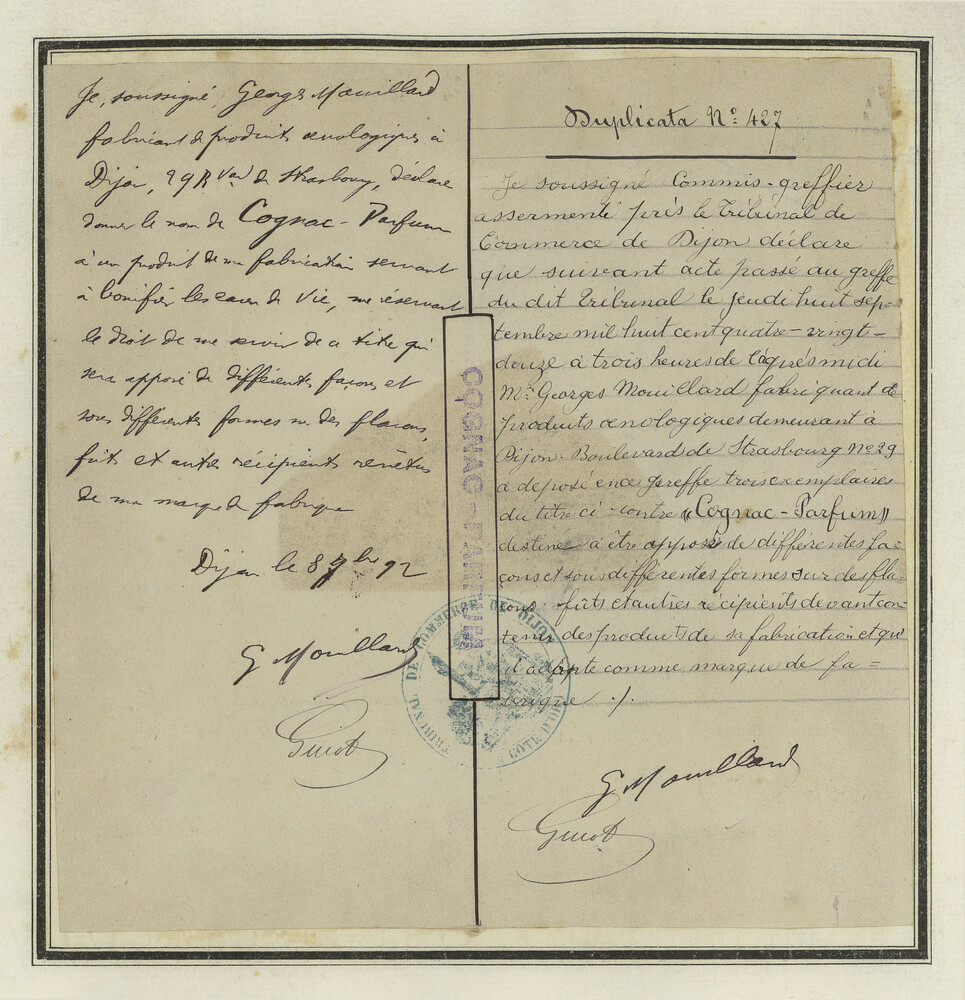 Je, soussigné, Georges Mouillard
fabricant de produits œnologiques à
Dijon, 29 Bvard de Strasbourg, déclare
donner le nom de Cognac-Parfum
à un produit de ma fabrication servant
à bonifier les eaux de vie, me réservant
le droit de me servir de ce titre qui
sera apposé de différentes façons et
sous différentes formes sur des flacons,
fûts et autres récipients revêtus
de ma marque de fabrique
Dijon le 8 7bre 92
G Mouillard
Guiot
COGNAC-PARFUM
TRIBUNAL DE COMMERCE DE DIJON
COTE D'OR
Duplicata No. 427
Je soussigné Commis-greffier
assermenté près le Tribunal de
Commerce de Dijon déclare
que suivant acte passé au greffe
du dit Tribunal le jeudi huit sep-
tembre mil huit cent quatre-vingt-
douze à trois heures de l'après midi
Mr. Georges Mouillard fabriquant de
produits œnologiques demeurant à
Dijon. Boulevard de Strasbourg No 29
a déposé en ce greffe trois exemplaires
du titre ci-contre «Cognac-Parfum»
destiné à être apposé de différentes fa=
çons et sous différentes formes sur des fla-
cons fûts et autres récipients devant con-
tenir des produits de sa fabrication et qu'
il adopte comme marque de fa=
brique ./.
G Mouillard
Guiot